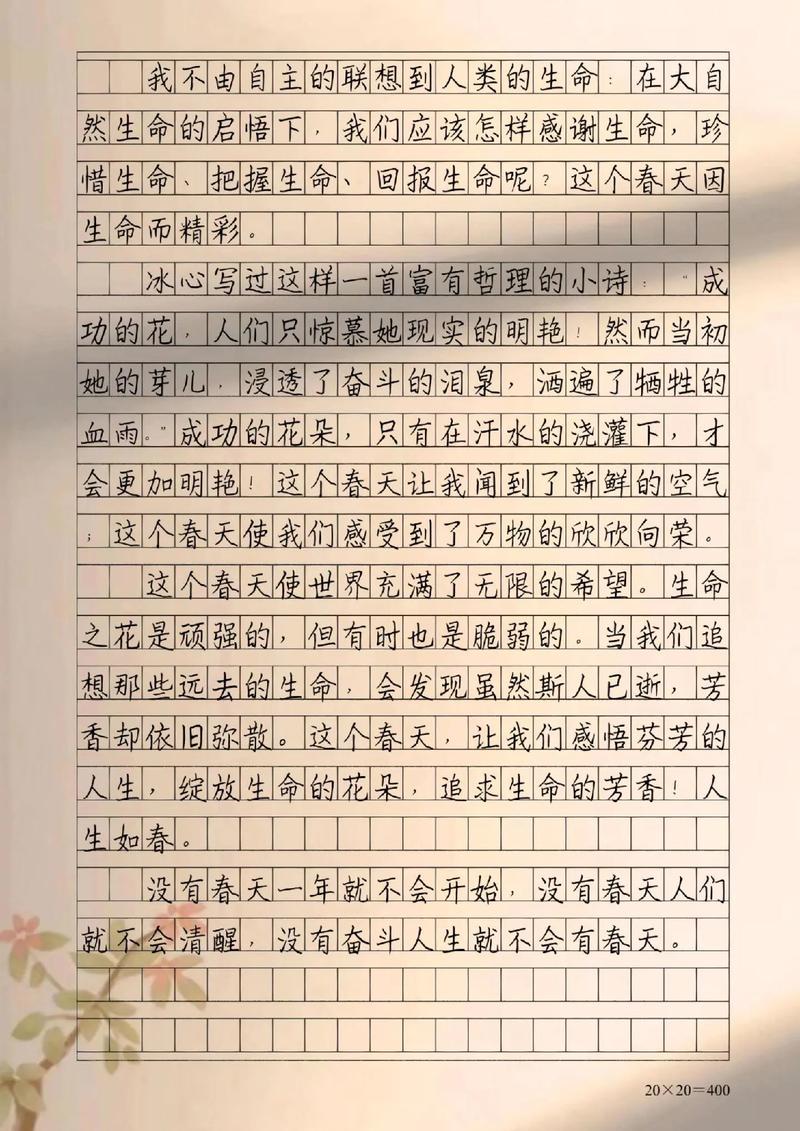 我不由自主的联想到人类的生命：在大自
然生命的启悟下，我们应该怎样感谢生命，珍
惜生命、把握生命、回报生命呢？这个春天因
生命而精彩。
冰心写过这样一首富有哲理的小诗：“成
功的花，人们只惊慕她现实的明艳！然而当初
她的芽儿，浸透了奋斗的泪泉，洒遍了牺牲的
血雨。”成功的花朵，只有在汗水的浇灌下，才
会更加明艳！这个春天让我闻到了新鲜的空气
；这个春天使我们感受到了万物的欣欣向荣。
这个春天使世界充满了无限的希望。生命
之花是顽强的，但有时也是脆弱的。当我们追
想那些远去的生命，会发现虽然斯人已逝，芳
香却依旧弥散。这个春天，让我们感悟芬芳的
人生，绽放生命的花朵，追求生命的芳香！人
生如春。
没有春天一年就不会开始，没有春天人们
就不会清醒，没有奋斗人生就不会有春天。
20×20=400